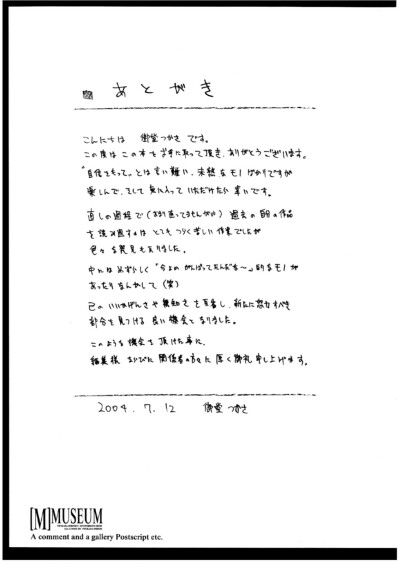 あとがき
こんにちは 御堂つかさ です。
この度は この本を お手に取って頂き、ありがとうございます。
"自信をもって。"とは 言い難い、未熟なモノ ばかりですが
楽しんで、そして 気に入って いただけたら 幸いです。
直しの過程で(あまり直ってませんが…) 過去の 自分の作品
を 読み返すのは とても つらく 苦しい 作業でしたが
色々な 発見もありました。
中には めずらしく 「今より がんばってたんだな〜」的なモノ が
あったり なんかして(笑)
己の いいかげんさ や 無知さ を 反省し、新たに努力すべき
部分を 見つける 良い 機会と なりました。
このような 機会を 頂けた事に、
編集様、ならびに 関係者の方々に 厚く 御礼 申し上げます。
2004. 7. 12 御堂 つかさ
[M]MUSEUM
A comment and a gallery Postscript etc.